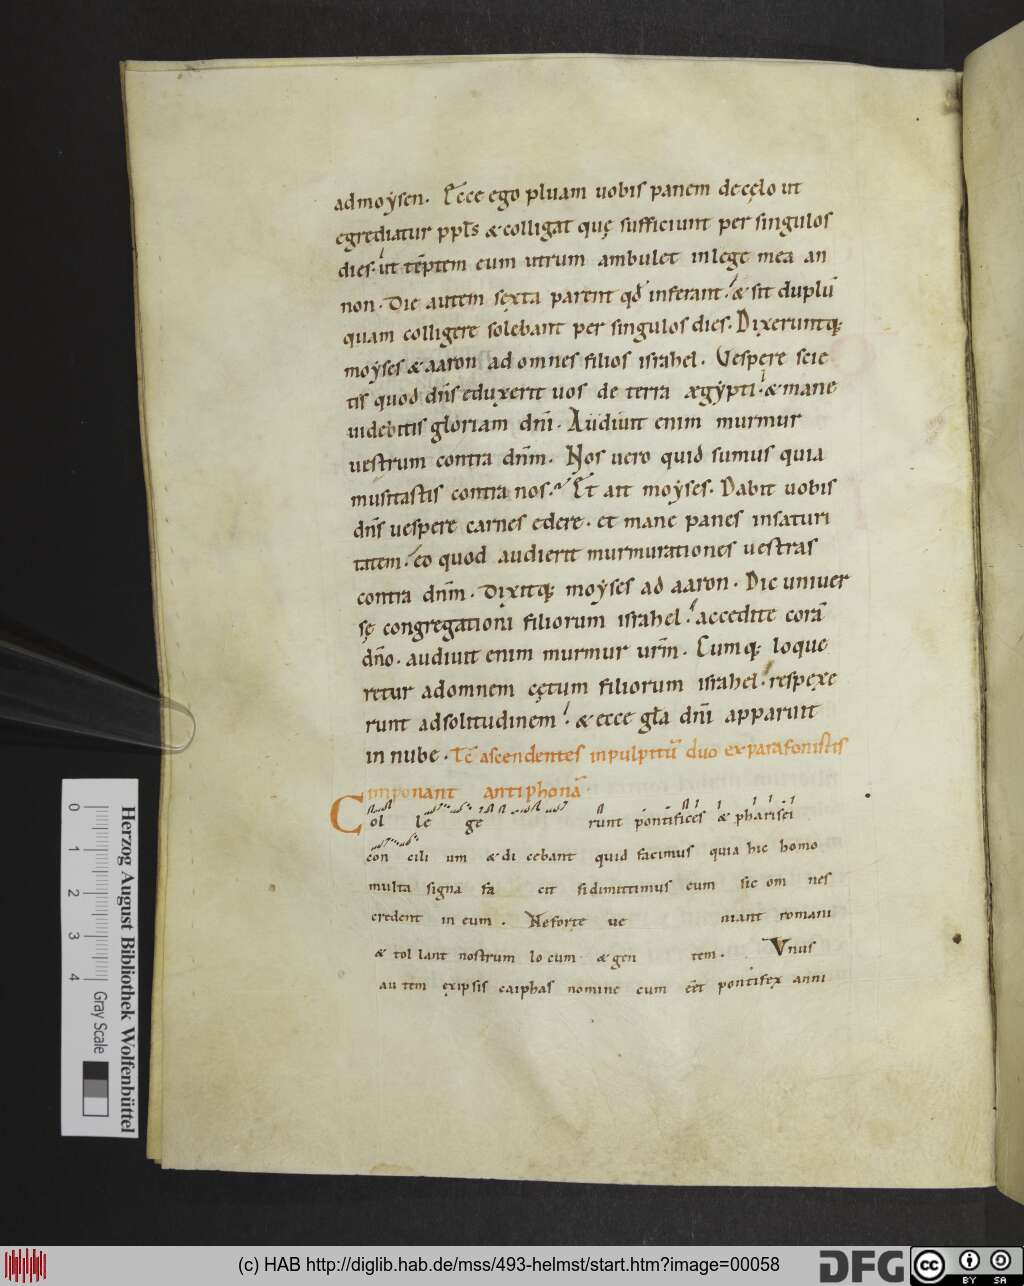 admoẏsen. Ecce ego pluam uobis panem decęlo ut
egrediatur ppl̄s & colligat quę sufficiunt per singulos
dies. ut tēptem eum utrum ambulet inlege mea an
non. Die autem sexta parent qd̄ inferant. & sit duplū
quam colligere solebant per singulos dies. Dixeruntq;
moẏses & aaron ad omnes filios israhel. Uespere scie
tis quod dn̄s eduxerit uos de terra ægẏpti. & mane
uidebitis gloriam dn̄i. Audiuit enim murmur
uestrum contra dn̄m. Nos uero quid sumus quia
musitastis contra nos. Et ait moẏses. Dabit uobis
dn̄s uespere carnes edere. et mane panes insaturi
tatem. eo quod audierit murmurationes uestras
contra dn̄m. Dixitq; moẏses ad aaron. Dic uniuer
sę congregationi filiorum israhel. accedite corā
dn̄o. audiuit enim murmur ur̄m. Cumq; loque
retur adomnem cętum filiorum israhel. respexe
runt adsolitudinem. & ecce gl̄a dn̄i apparuit
in nube. Tc̄ ascendentes inpulpitū duo exparafonistis
inponant antiphonā.
Col le ge runt pontifices & pharisei
con cili um & di cebant quid facimus quia hic homo
multa signa fa cit sidimittimus eum sic om nes
credent in eum. Neforte ue niant romani
& tol lant nostrum lo cum & gen tem. Vnus
au tem exipsis caiphas nomine cum eēt pontifex anni
Herzog August Bibliothek Wolfenbüttel
0 1 2 3 4 Gray Scale
(c) HAB http://diglib.hab.de/mss/493-helmst/start.htm?image=00058
DFG
cc BY SA